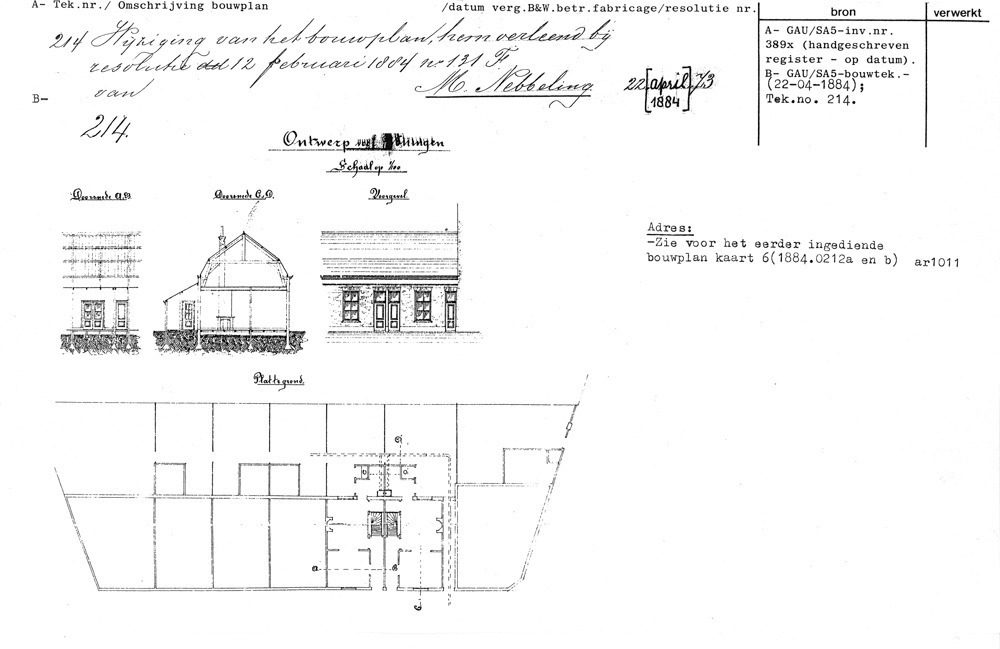 A- Tek.nr./ Omschrijving bouwplan /datum verg.B&W.betr.fabricage/resolutie nr.
bron
verwerkt
214 Wijziging van het bouwplan, hem verleend bij
resolutie dd 12 februari 1884 no 131 F
van M. Nebbeling.
22 [april 1884] 73
A- GAU/SA5-inv.nr.
389x (handgeschreven
register - op datum).
B- GAU/SA5-bouwtek.-
(22-04-1884);
Tek.no. 214.
B-
214.
Ontwerp
Schaal op 1/100
Doorsnede A.B.
Doorsnede C.D.
Voorgevel
Adres:
-Zie voor het eerder ingediende
bouwplan kaart 6(1884.0212a en b) ar1011
Platte grond.